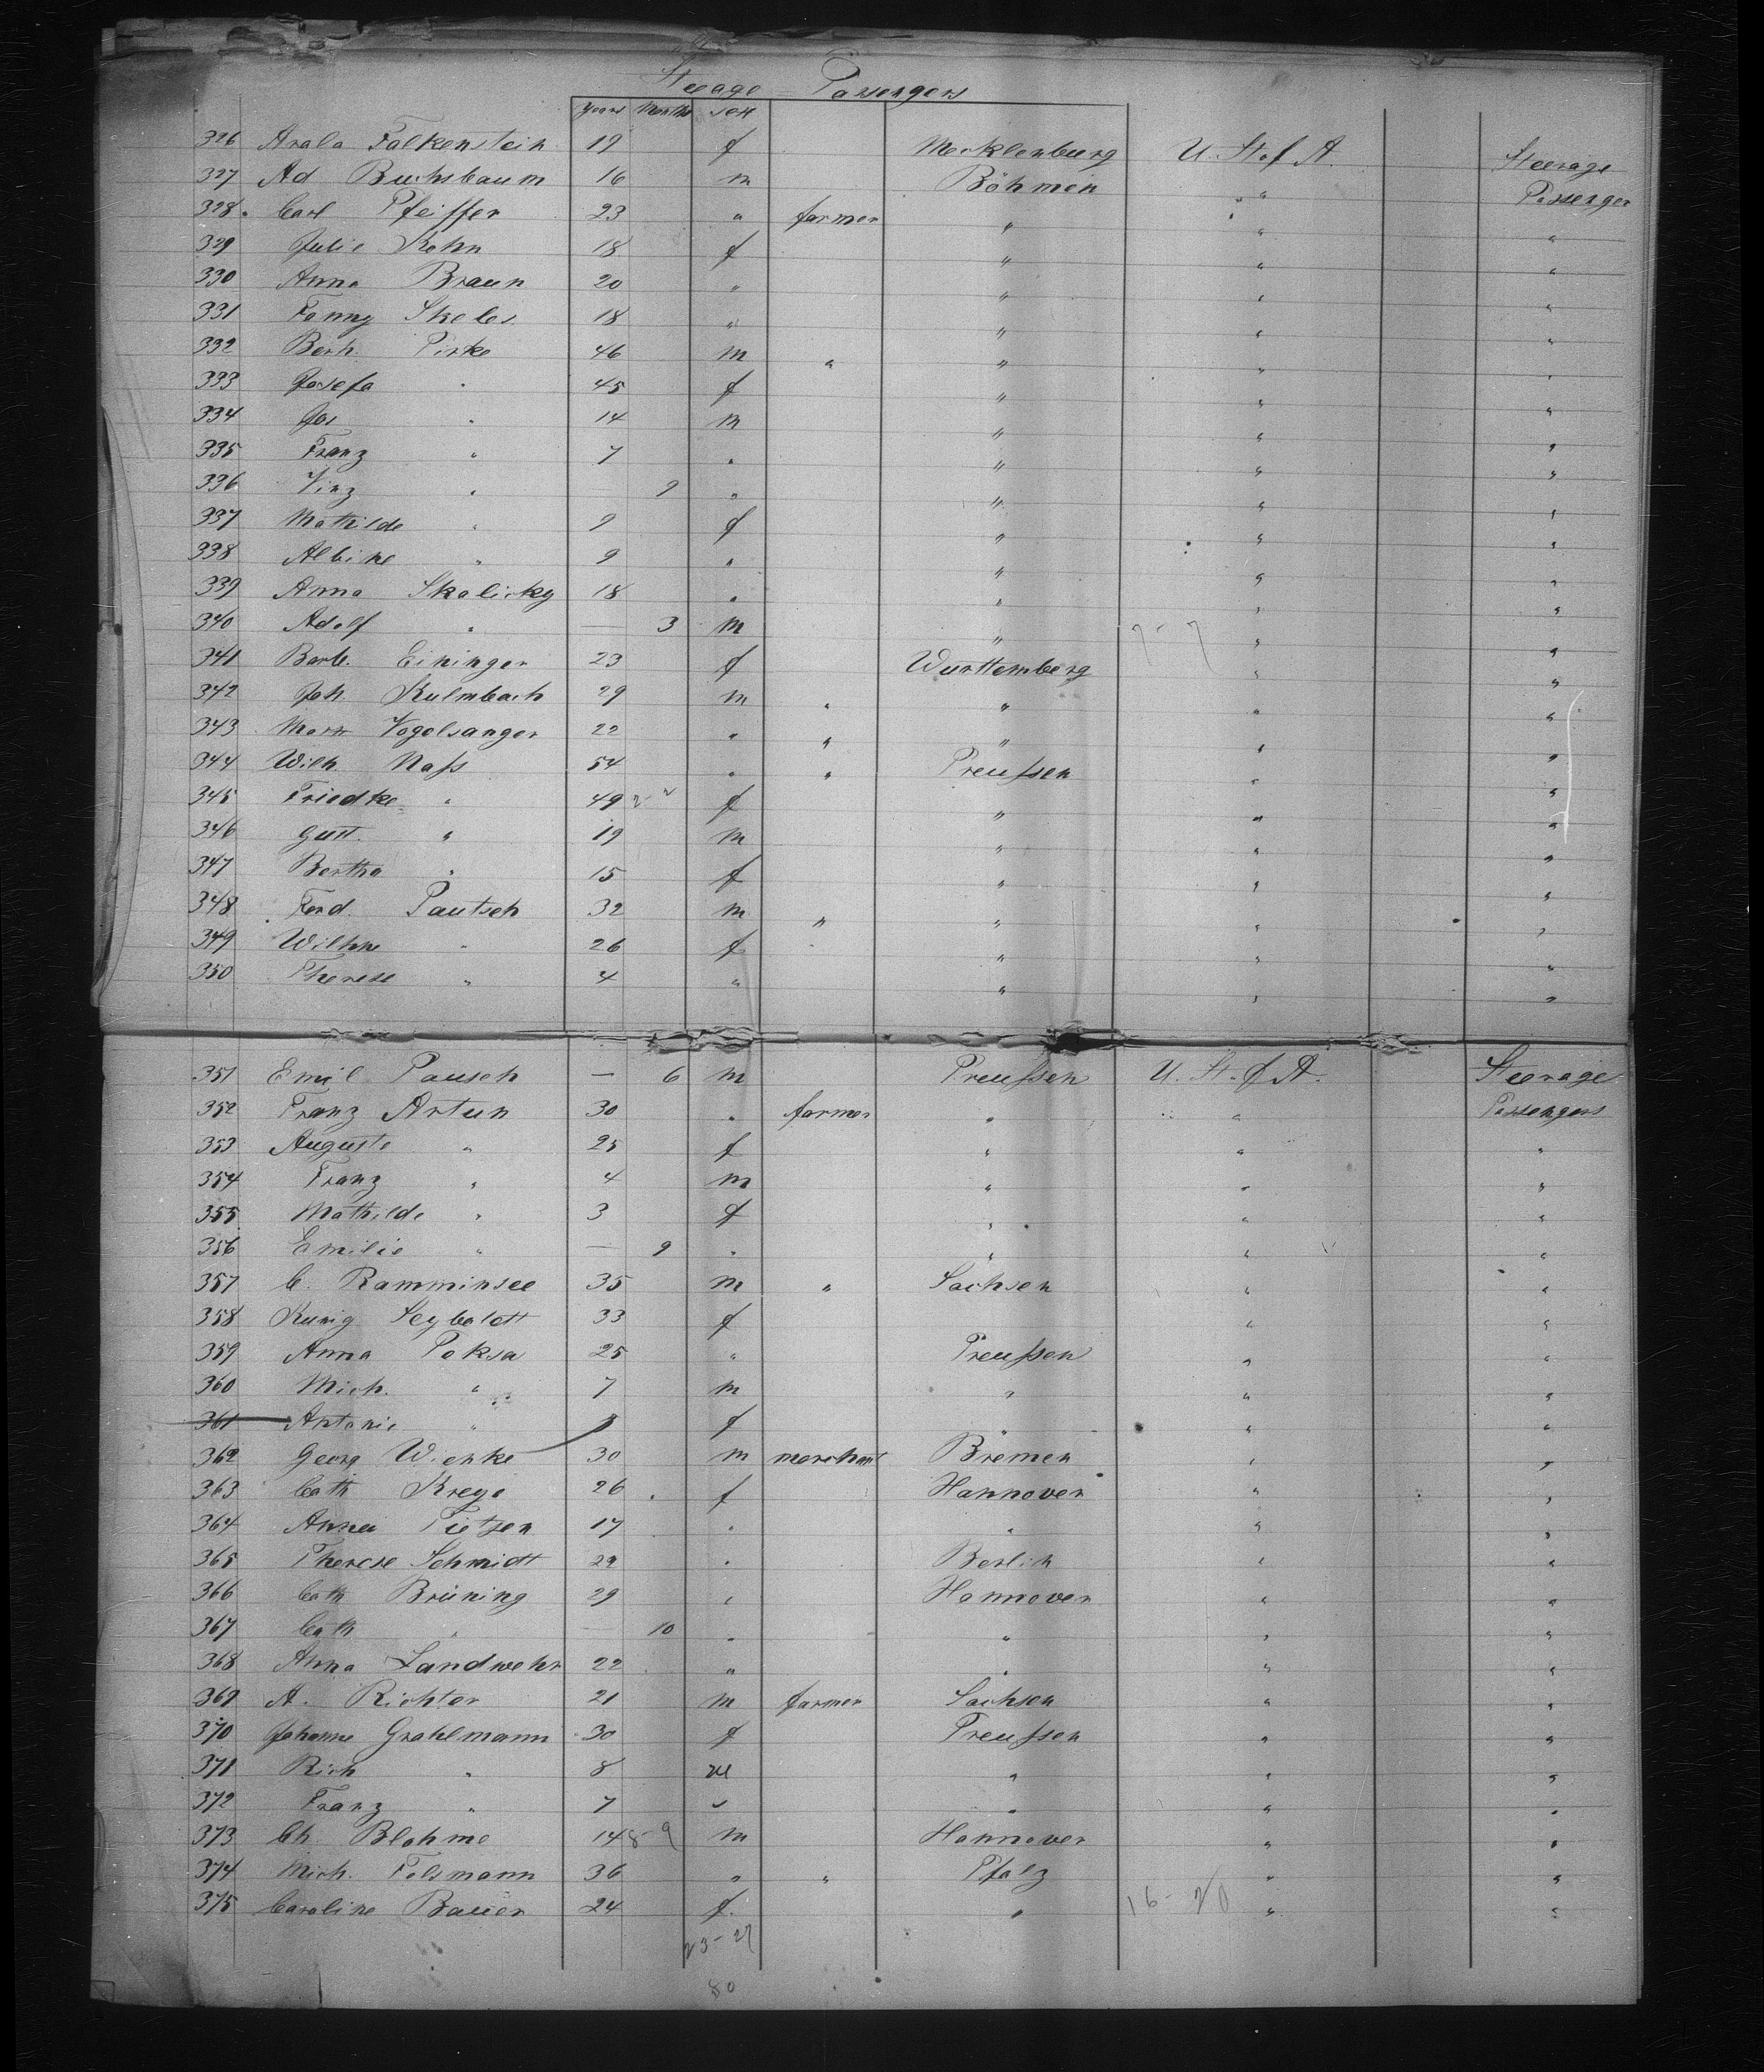 Steerage Passengers
Years Months sex
326 Arala Falkenstein 19 f Mecklenburg U. St. of A. Steerage
327 Ad Buchsbaum 16 m Böhmen " Passenger
328 Carl Pfeiffer 23 " farmer " " "
329 Julie Kohn 18 f " " "
330 Anna Braun 20 " " " "
331 Fanny Skeles 18 " " " "
332 Bernh. Pirke 46 m " " " "
333 Josefa " 45 f " " "
334 Jos " 14 m " " "
335 Franz " 7 " " " "
336 Vinz " 9 " " " "
337 Mathilde " 9 f " " "
338 Albine " 9 " " " "
339 Anna Skalicky 18 " " " "
340 Adolf " — 3 m " 7-7 " "
341 Barb. Eininger 23 f Wurttemberg " "
342 Joh. Kulmbach 29 m " " " "
343 Mart Vogelsanger 22 " " " " "
344 Wilh. Naß 54 " " Preußen " "
345 Friedke " 49 2-2 f " " "
346 Gust. " 19 m " " "
347 Bertha " 15 f " " "
348 Ferd. Pautsch 32 m " " " "
349 Wilhne " 26 f " " "
350 Therese " 4 " " " "
351 Emil Pausch — 6 m Preußen U. St. of A. Steerage
352 Franz Artun 30 " farmer " " Passengers
353 Auguste " 25 f " " "
354 Franz " 4 m " " "
355 Mathilde " 3 f " " "
356 Emilie " — 9 " " " "
357 C. Ramminsee 35 m " Sachsen " "
358 Kunig Seyboldt 33 f " "
359 Anna Poksa 25 " Preußen " "
360 Mich. " 7 m " " "
361 Antonie " f " " "
362 Georg Wienke 30 m merchant Bremen " "
363 Cath Krege 26 f Hannover " "
364 Anna Tietjen 17 " " " "
365 Therese Schmidt 29 " Berlin " "
366 Cath Brüning 29 " Hannover " "
367 Cath " — 10 " " " "
368 Anna Landwehr 22 " " " "
369 A. Richter 21 m farmer Sachsen " "
370 Johanne Grahlmann 30 f Preußen " "
371 Rich " 8 m " " "
372 Franz " 7 " " " "
373 Ch. Blohme 14 8-9 m Hannover " "
374 Mich. Folsmann 36 " " Pfalz " "
375 Caroline Bauer 24 f. " 16-20 " "
23-27
80